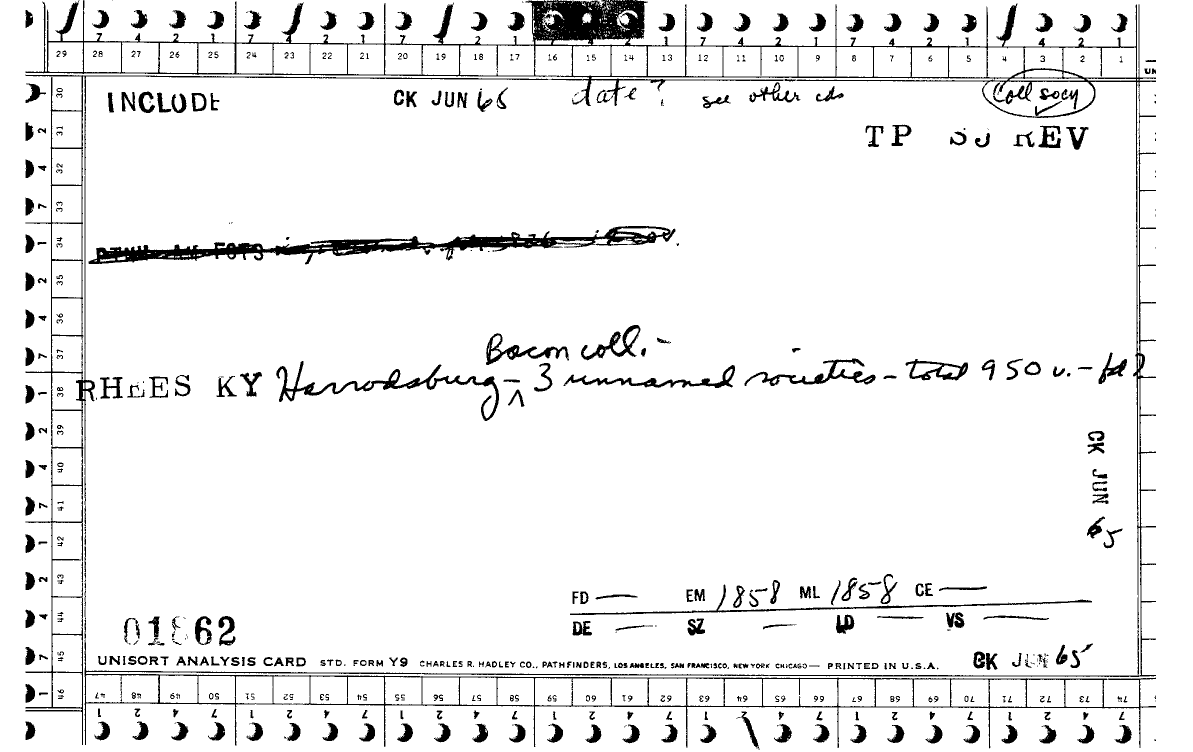 7 4 2 1 7 4 2 1 7 4 2 1 7 4 2 1 7 4 2 1 7 4 2 1 7 4 2 1
29 28 27 26 25 24 23 22 21 20 19 18 17 16 15 14 13 12 11 10 9 8 7 6 5 4 3 2 1
INCLUDE CK JUN 65 date? see other cds Coll socy
TP SJ REV
Bacon coll. -
RHEES KY Harrodsburg - ^ 3 unnamed societies - total 950 v. - fd?
CK JUN 65
FD — EM 1858 ML 1858 CE —
DE — SZ — LD — VS —
01862
UNISORT ANALYSIS CARD STD. FORM Y9 CHARLES R. HADLEY CO., PATHFINDERS, LOS ANGELES, SAN FRANCISCO, NEW YORK CHICAGO — PRINTED IN U.S.A. CK JUN 65
30 31 32 33 34 35 36 37 38 39 40 41 42 43 44 45 46
47 48 49 50 51 52 53 54 55 56 57 58 59 60 61 62 63 64 65 66 67 68 69 70 71 72 73 74
1 2 4 7 1 2 4 7 1 2 4 7 1 2 4 7 1 2 4 7 1 2 4 7 1 2 4 7